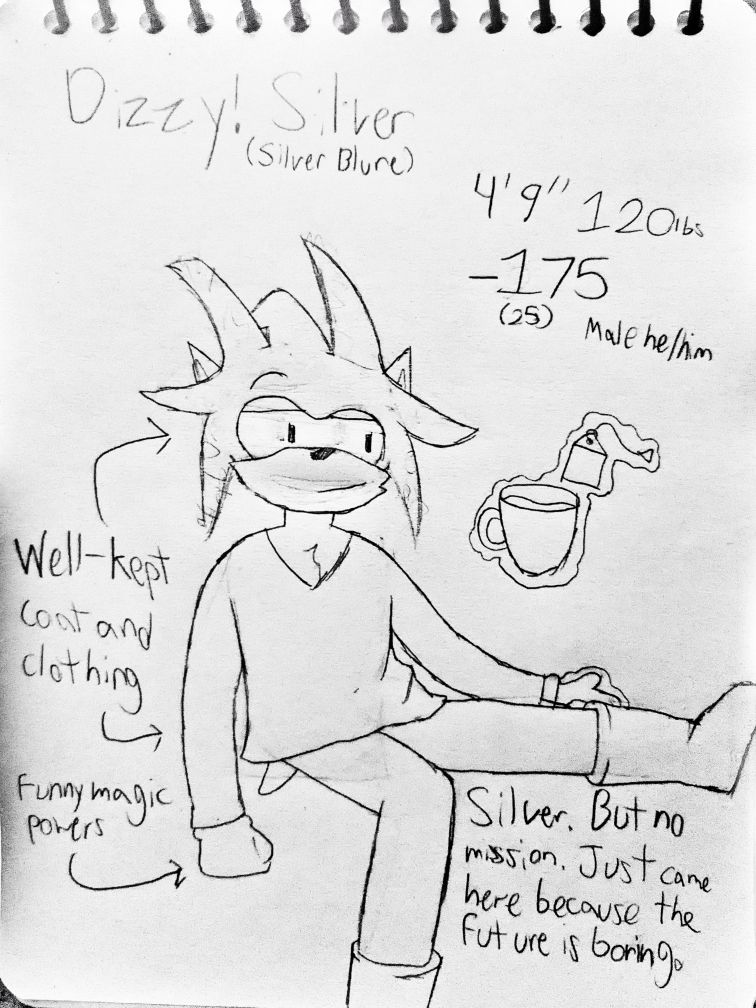 Dizzy! Silver
(Silver Blure)
4'9" 120lbs
-175
(25)
Male he/him
Well-kept
coat and
clothing
Funny magic
powers
Silver. But no
mission. Just came
here because the
future is boring.